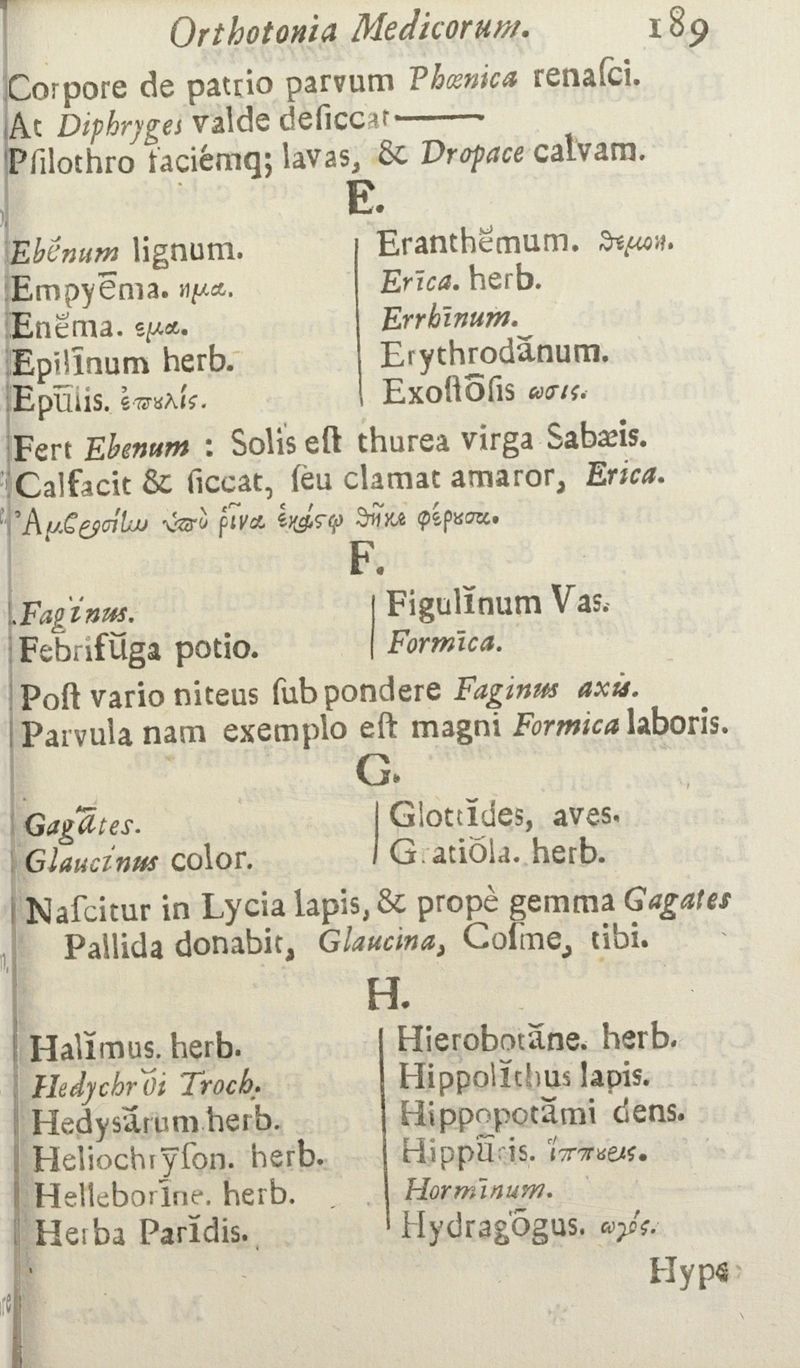 Orthotonia Medicorum. 189
Corpore de patrio parvum Phœnica renaſci.
At Diphryges valde deſiccat———
Pſilothro faciémq; lavas, & Dropace calvam.
E.
Ebĕnum lignum.
Empyēma. ημα.
Enĕma. εμα.
Epilīnum herb.
Epūlis. ἐπουλίς.
Eranthĕmum. θεμον.
Erīca. herb.
Errhīnum.
Erythrodănum.
Exoſtōſis ωσις.
Fert Ebenum : Solis eſt thurea virga Sabæis.
Calfacit & ſiccat, ſeu clamat amaror, Erica.
ὑπὸ ῥῖνα ἑκάστῳ θῆκε φέρουσα.
F.
Fagĭnus.
Febrifŭga potio.
Figulīnum Vas.
Formīca.
Poſt vario niteus ſub pondere Faginus axis.
Parvula nam exemplo eſt magni Formica laboris.
G.
Gagātes.
Glaucĭnus color.
Glottĭdes, aves.
Gratiŏla. herb.
Naſcitur in Lycia lapis, & propè gemma Gagates
Pallida donabit, Glaucina, Coſme, tibi.
H.
Halĭmus. herb.
Hedychrŏi Troch.
Hedysărum herb.
Heliochrȳſon. herb.
Helleborīne. herb.
Herba Parĭdis.
Hierobotăne. herb.
Hippolĭthus lapis.
Hippopotămi dens.
Hippūris. ἵππουρις.
Hormīnum.
Hydragōgus. ωγός.
Hype